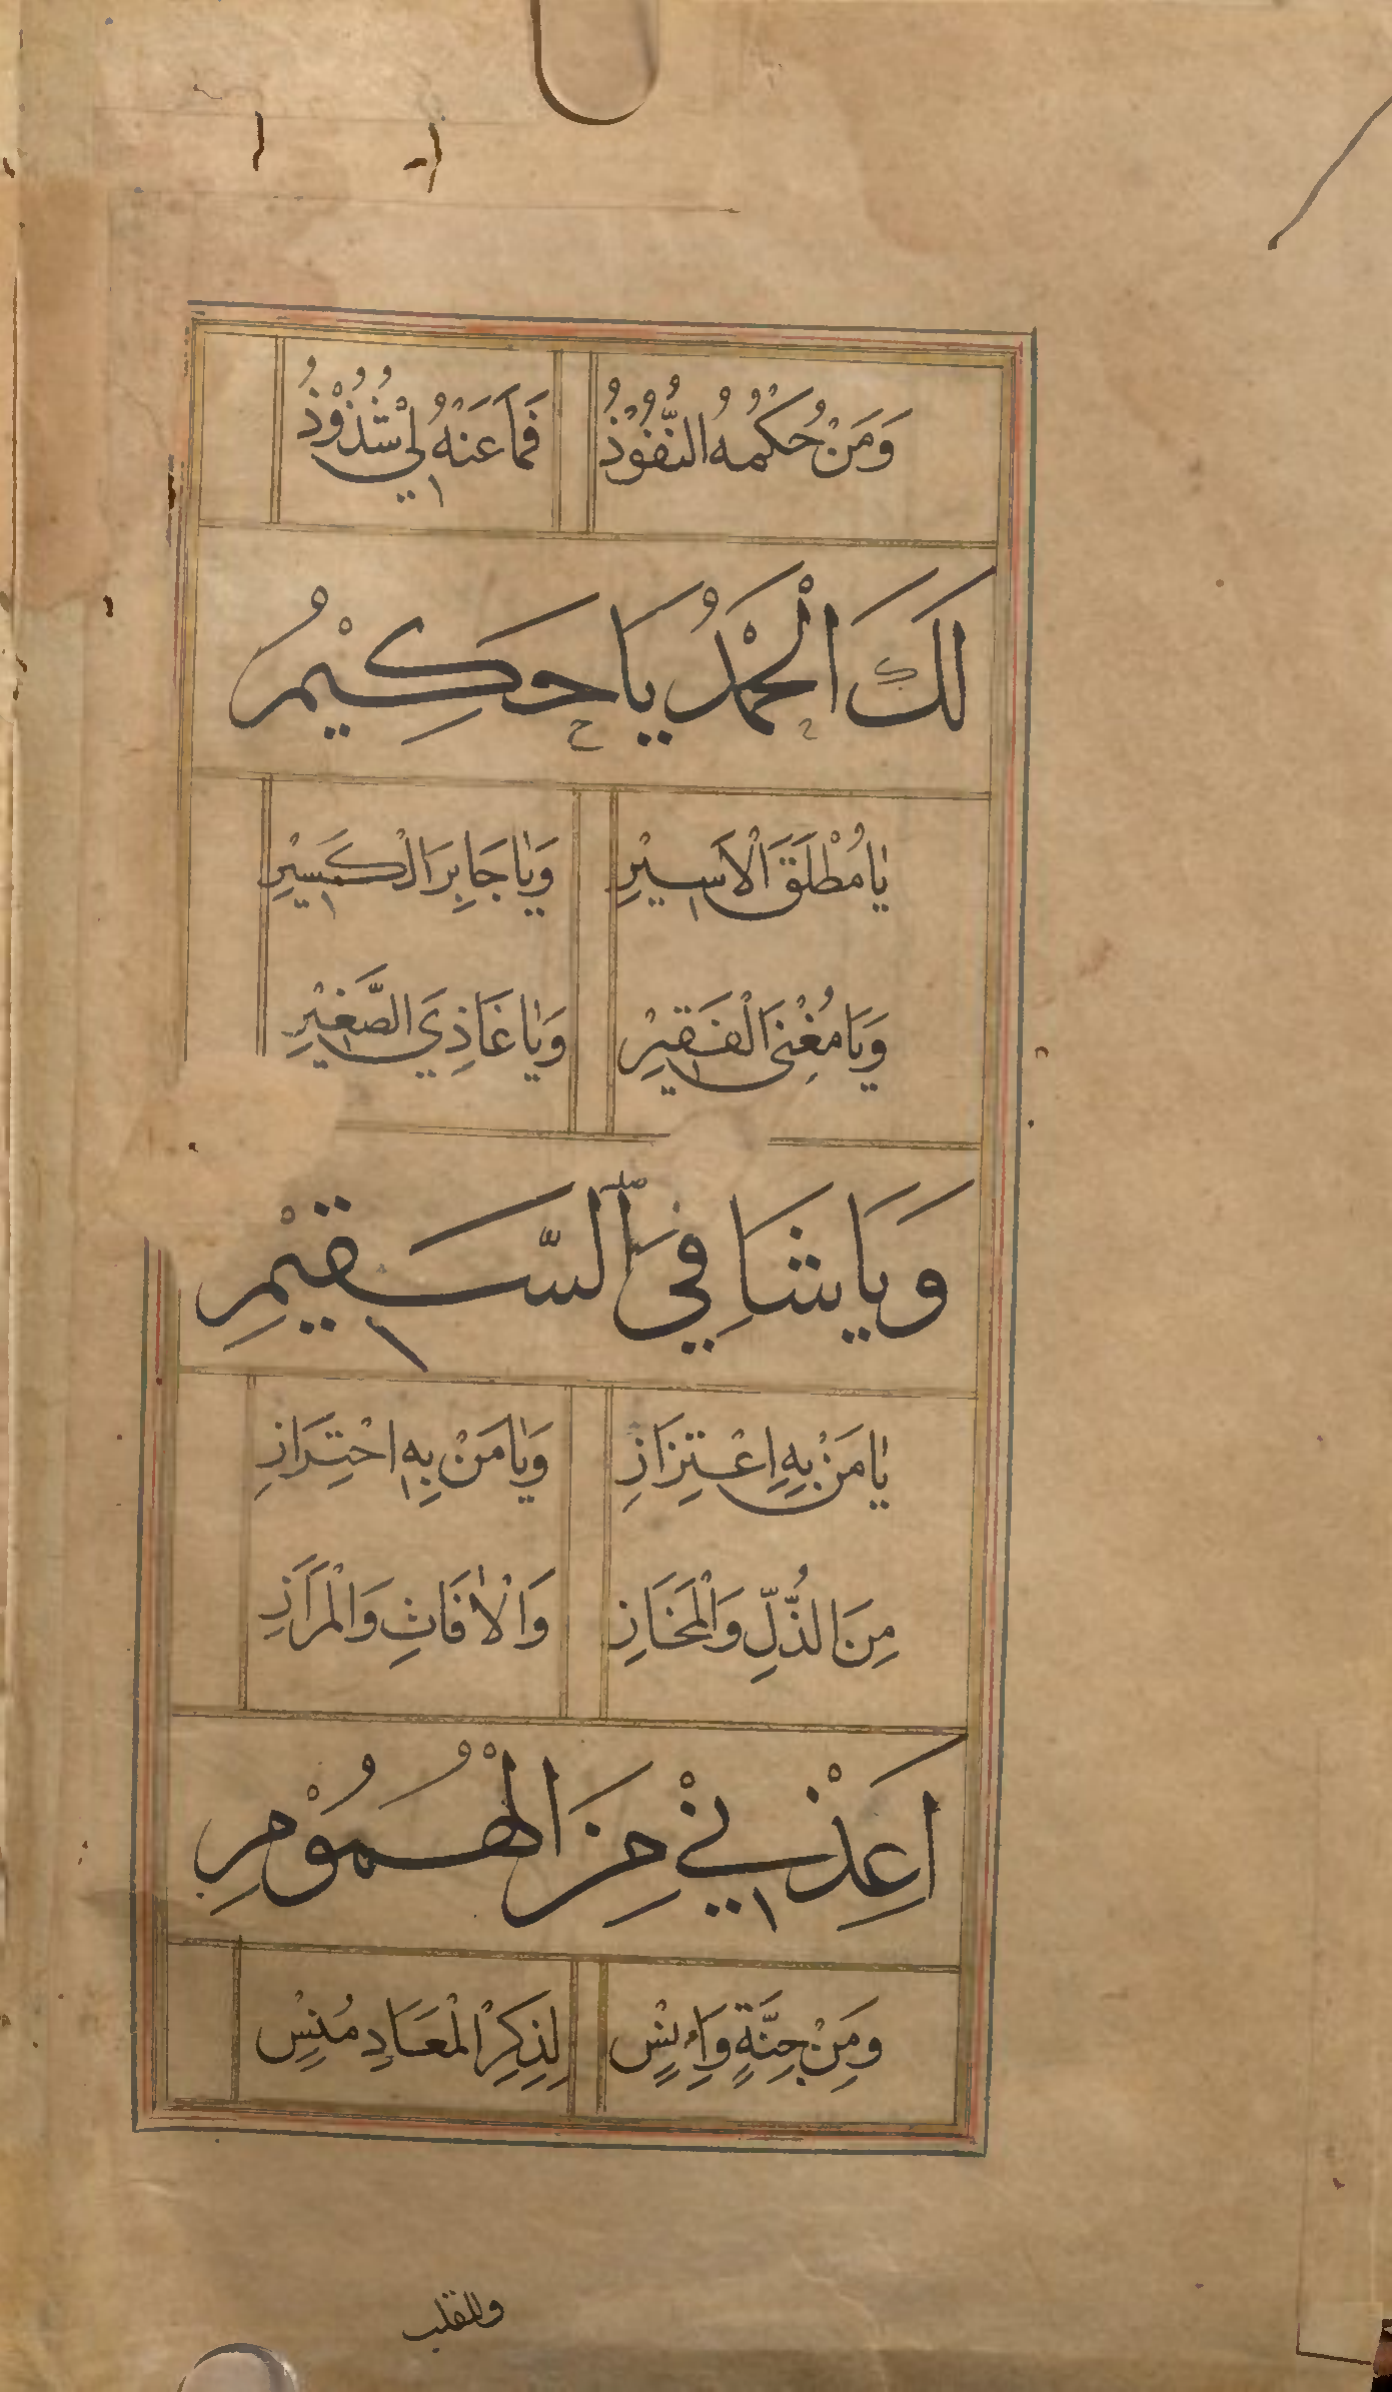 وَمَنْ حُكْمُهُ النُّفُوْذُ فَمَا عَنْهُ لِيْ شُذُوْذُ
لَكَ الْحَمْدُ يَا حَكِيْمُ
يٰا مُطْلَقَ الْاَسِيْرِ وَيٰا جَابِرَ الْكَسِيْرِ
وَيَا مُغْنِىَ الْفَقِيْرِ وَيٰا غَاذِيَ الصَّغِيْرِ
وَيَا شَافِيَ السَّقِيْمِ
يٰا مَنْ بِهِ اِعْتِزَازِ وَيٰا مَنْ بِهِ احْتِرَازِ
مِنَ الذُّلِّ وَالْمَخَازِ وَالْاٰفَاتِ وَالْمَرَازِ
اَعِذْنِيْ مِنَ الْهُمُوْمِ
وَمَنْ جِنَّةٍ وَاِنْسٍ لِذِكِرْ الْمَعَادِ مُنِسْ
وللقلب